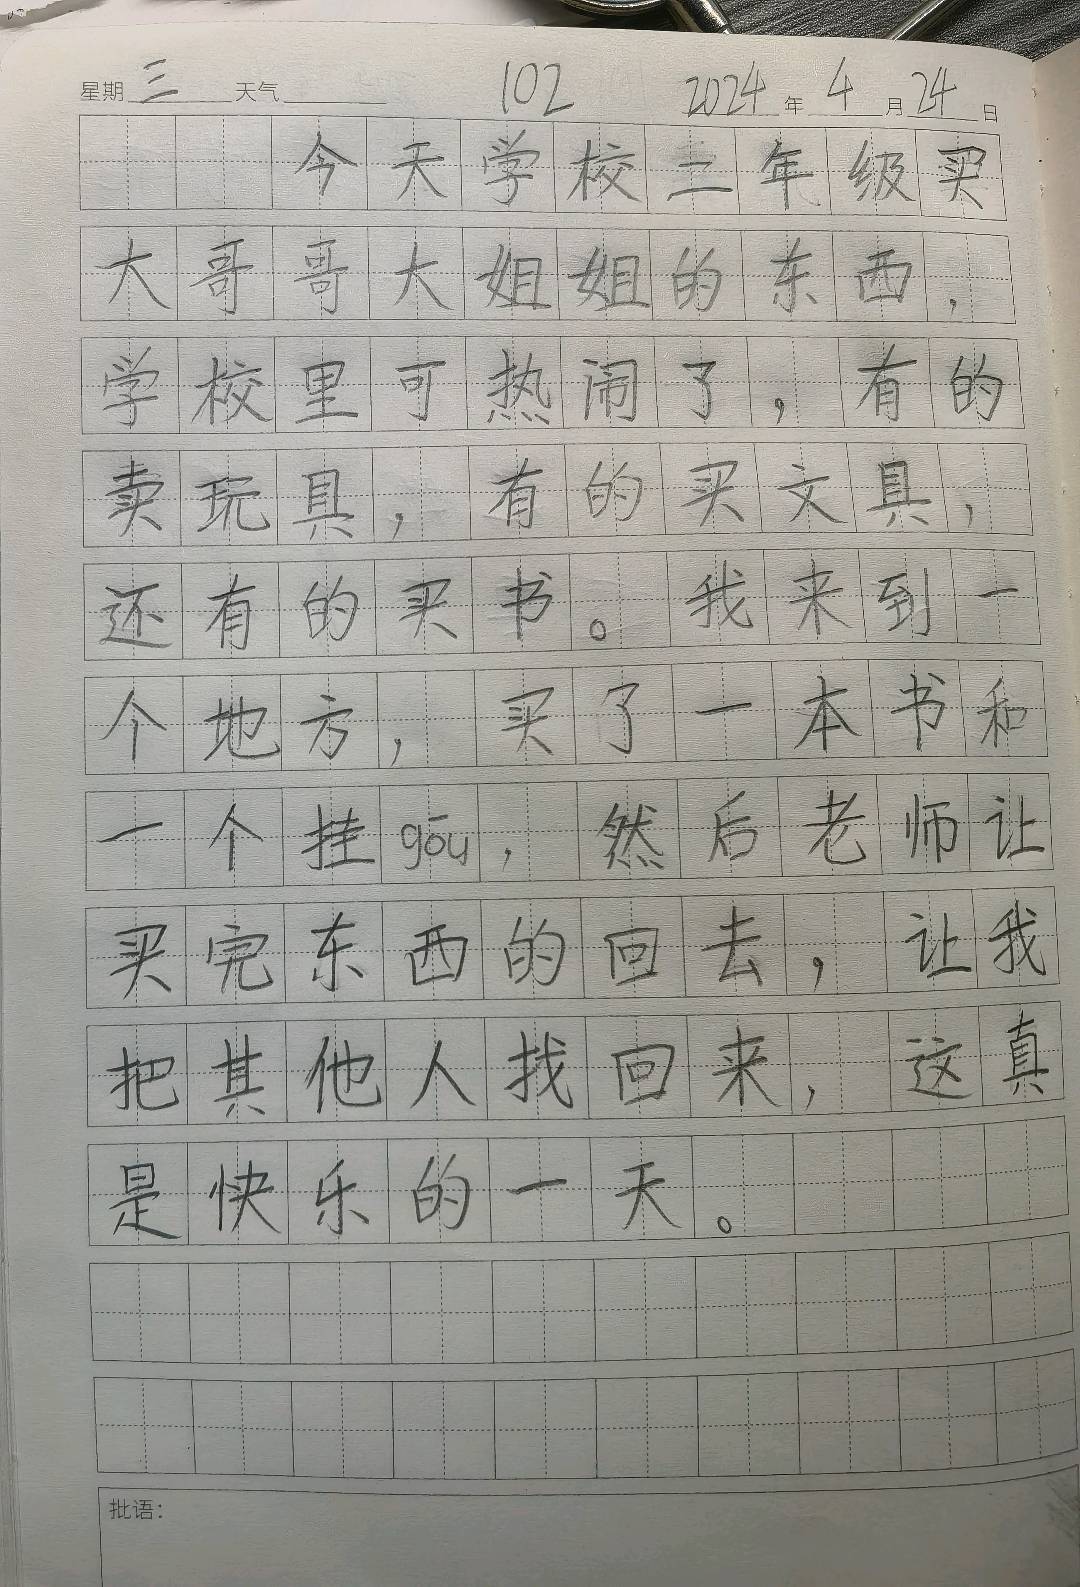 星期三 天气 102 2024年4月24日
今天学校二年级买
大哥哥大姐姐的东西，
学校里可热闹了，有的
卖玩具，有的买文具，
还有的买书。我来到一
个地方，买了一本书和
一个挂gōu，然后老师让
买完东西的回去，让我
把其他人找回来，这真
是快乐的一天。
批语：